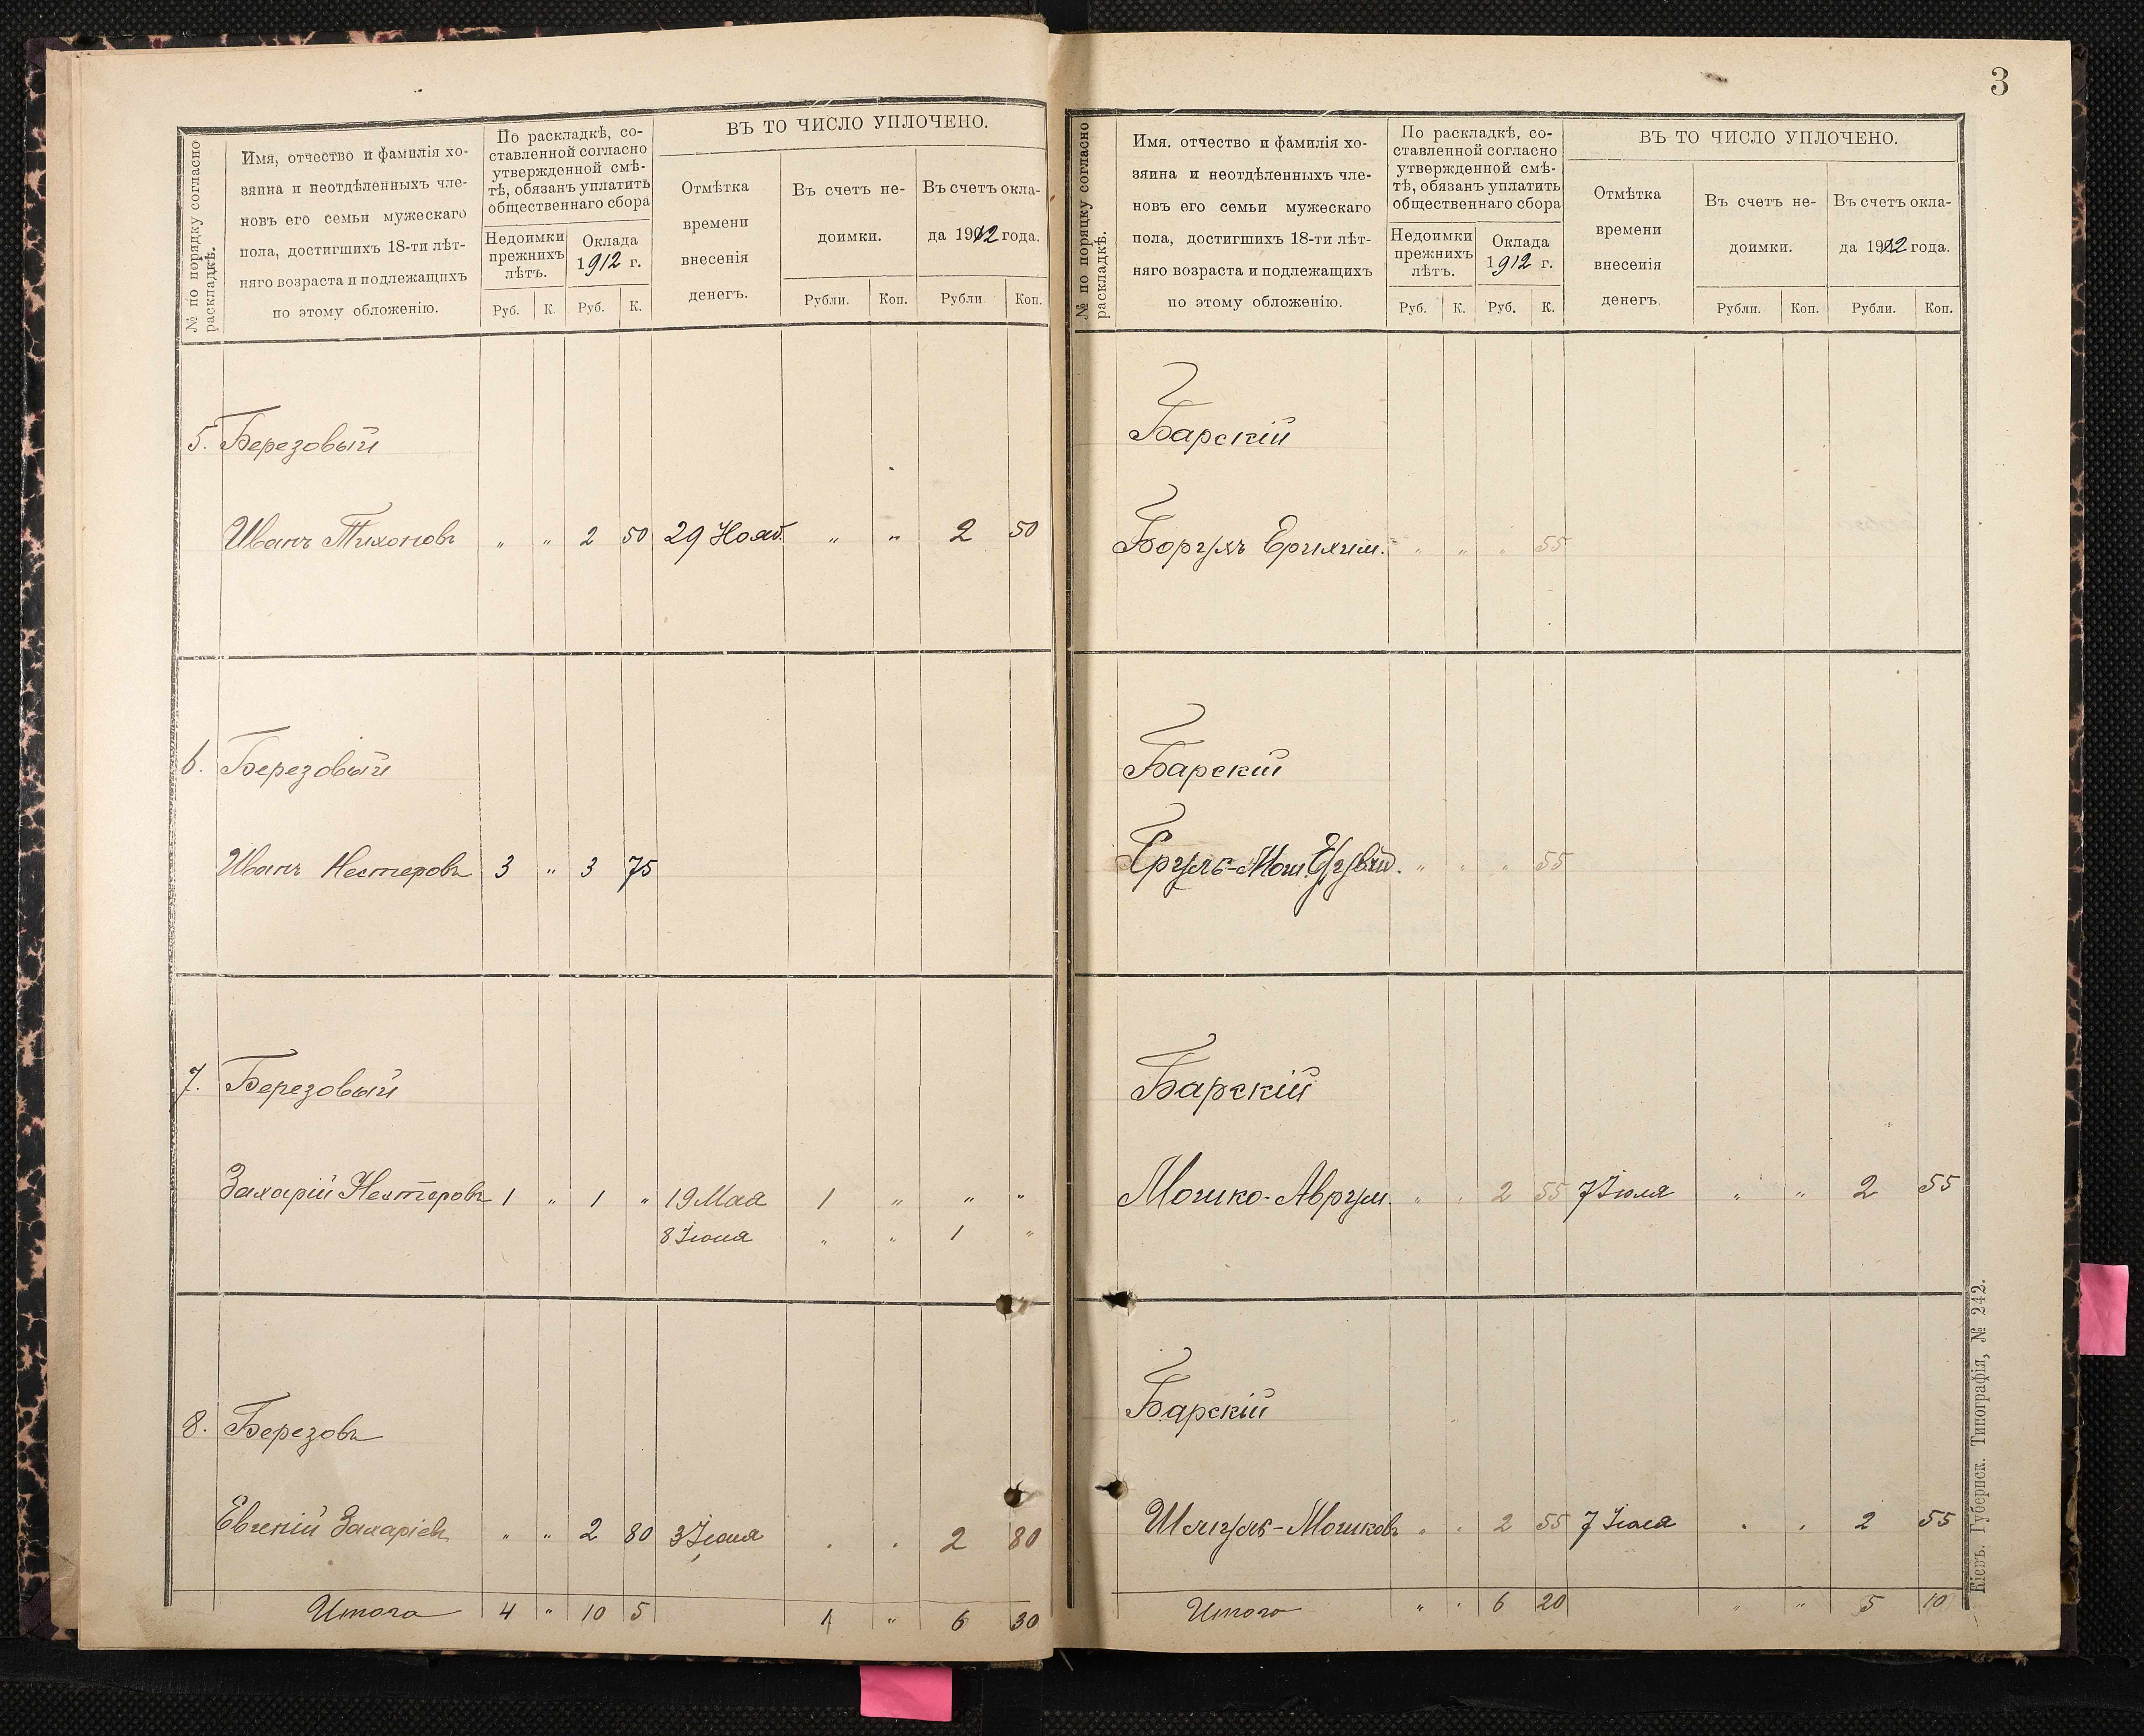 № по порядку согласно
раскладкѣ.
Имя, отчество и фамилія хо-
зяина и неотдѣленныхъ чле-
новъ его семьи мужескаго
пола, достигшихъ 18-ти лѣт-
няго возраста и подлежащихъ
по этому обложенію.
По раскладкѣ, со-
ставленной согласно
утвержденной смѣ-
тѣ, обязанъ уплатить
общественнаго сбора
Недоимки
прежнихъ
лѣтъ.
Оклада
1912 г.
Руб. К. Руб. К.
ВЪ ТО ЧИСЛО УПЛОЧЕНО.
Отмѣтка
времени
внесенія
денегъ.
Въ счетъ не-
доимки.
Въ счетъ окла-
да 1912 года.
Рубли. Коп. Рубли Коп.
5. Березовый
Иванъ Тихоновъ " " 2 50 29 Нояб. " " 2 50
6. Березовый
Иванъ Нестеровъ 3 " 3 75
7. Березовый
Захарій Нестеровъ 1 " 1 " 19 Мая 1 " " "
8 Іюня " " 1 "
8. Березовъ
Евгеній Захаріевъ " " 2 80 3 Іюня . . 2 80
Итого 4 " 10 5 1 " 6 30
3
№ по порядку согласно
раскладкѣ.
Имя. отчество и фамилія хо-
зяина и неотдѣленныхъ чле-
новъ его семьи мужескаго
пола, достигшихъ 18-ти лѣт-
няго возраста и подлежащихъ
по этому обложенію.
По раскладкѣ, со-
ставленной согласно
утвержденной смѣ-
тѣ, обязанъ уплатить
общественнаго сбора
Недоимки
прежнихъ
лѣтъ.
Оклада
1912 г.
Руб. К. Руб. К.
ВЪ ТО ЧИСЛО УПЛОЧЕНО.
Отмѣтка
времени
внесенія
денегъ.
Въ счетъ не-
доимки.
Въ счетъ окла-
да 1912 года.
Рубли. Коп. Рубли. Коп.
Барскій
Борухъ " " " 55
Барскій
Сруль-Мош. " " " 55
Барскій
Мошко-Аврум. " " 2 55 7 Іюля " " 2 55
Барскій
Шмуль-Мошковъ " " 2 55 7 Іюля . . 2 55
Итого " " 6 20 " " 5 10
Кіевъ. Губернск. Типографія, № 242.